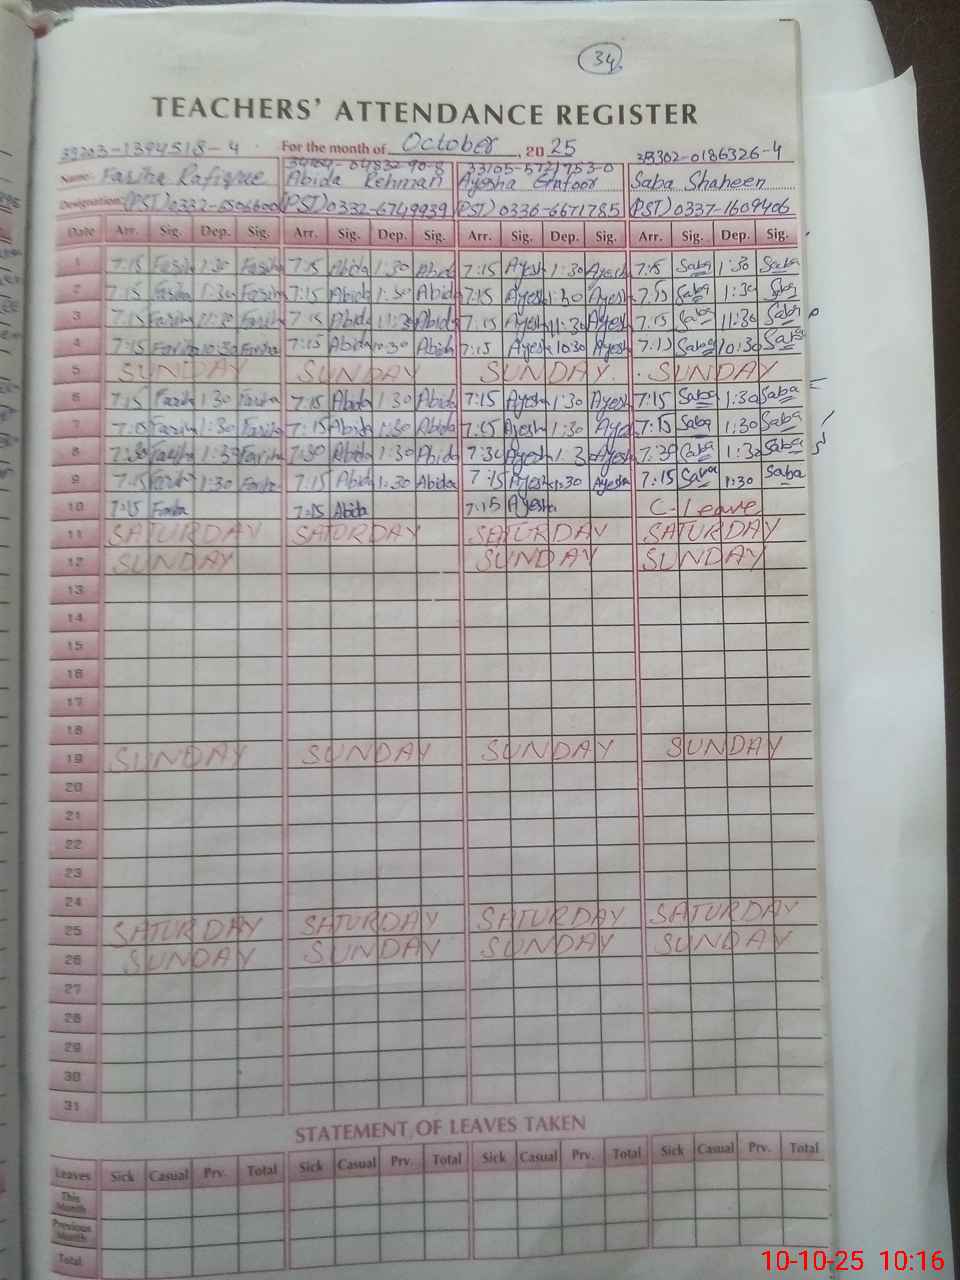 34
TEACHERS' ATTENDANCE REGISTER
For the month of October, 2025
33105-5721753-0 33302-0186326-4
Name: Fariha Rafique Abida Rehman Ayesha Gafoor Saba Shaheen
Designation: (PST) 0332-6506600 (PST) 0332-6749939 (PST) 0336-6671785 (PST) 0337-1609406
Date Arr. Sig. Dep. Sig. Arr. Sig. Dep. Sig. Arr. Sig. Dep. Sig. Arr. Sig. Dep. Sig.
1 7:15 Fariha 1:30 Fariha 7:15 Abida 1:30 Abida 7:15 Ayesh 1:30 Ayesh 7:15 Saba 1:30 Saba
2 7:15 Fariha 1:30 Fariha 7:15 Abida 1:30 Abida 7:15 Ayesh 1:30 Ayesh 7:15 Saba 1:30 Saba
3 7:15 Fariha 11:30 Fariha 7:15 Abida 11:30 Abida 7:15 Ayesh 11:30 Ayesh 7:15 Saba 11:30 Saba
4 7:15 Fariha 10:30 Fariha 7:15 Abida 10:30 Abida 7:15 Ayesh 10:30 Ayesh 7:15 Saba 10:30 Saba
5 SUNDAY SUNDAY SUNDAY SUNDAY
6 7:15 Fariha 1:30 Fariha 7:15 Abida 1:30 Abida 7:15 Ayesh 1:30 Ayesh 7:15 Saba 1:30 Saba
7 7:15 Fariha 1:30 Fariha 7:15 Abida 1:30 Abida 7:15 Ayesh 1:30 Ayesh 7:15 Saba 1:30 Saba
8 7:30 Fariha 1:30 Fariha 7:30 Abida 1:30 Abida 7:30 Ayesh 1:30 Ayesh 7:30 Saba 1:30 Saba
9 7:15 Fariha 1:30 Fariha 7:15 Abida 1:30 Abida 7:15 Ayesh 1:30 Ayesha 7:15 Saba 1:30 Saba
10 7:15 Fariha 7:15 Abida 7:15 Ayesha C-Leave
11 SATURDAY SATURDAY SATURDAY SATURDAY
12 SUNDAY SUNDAY SUNDAY
13
14
15
16
17
18
19 SUNDAY SUNDAY SUNDAY SUNDAY
20
21
22
23
24
25 SATURDAY SATURDAY SATURDAY SATURDAY
26 SUNDAY SUNDAY SUNDAY SUNDAY
27
28
29
30
31
STATEMENT OF LEAVES TAKEN
Leaves Sick Casual Prv. Total Sick Casual Prv. Total Sick Casual Prv. Total Sick Casual Prv. Total
This Month
Previous Month
Total
10-10-25 10:16